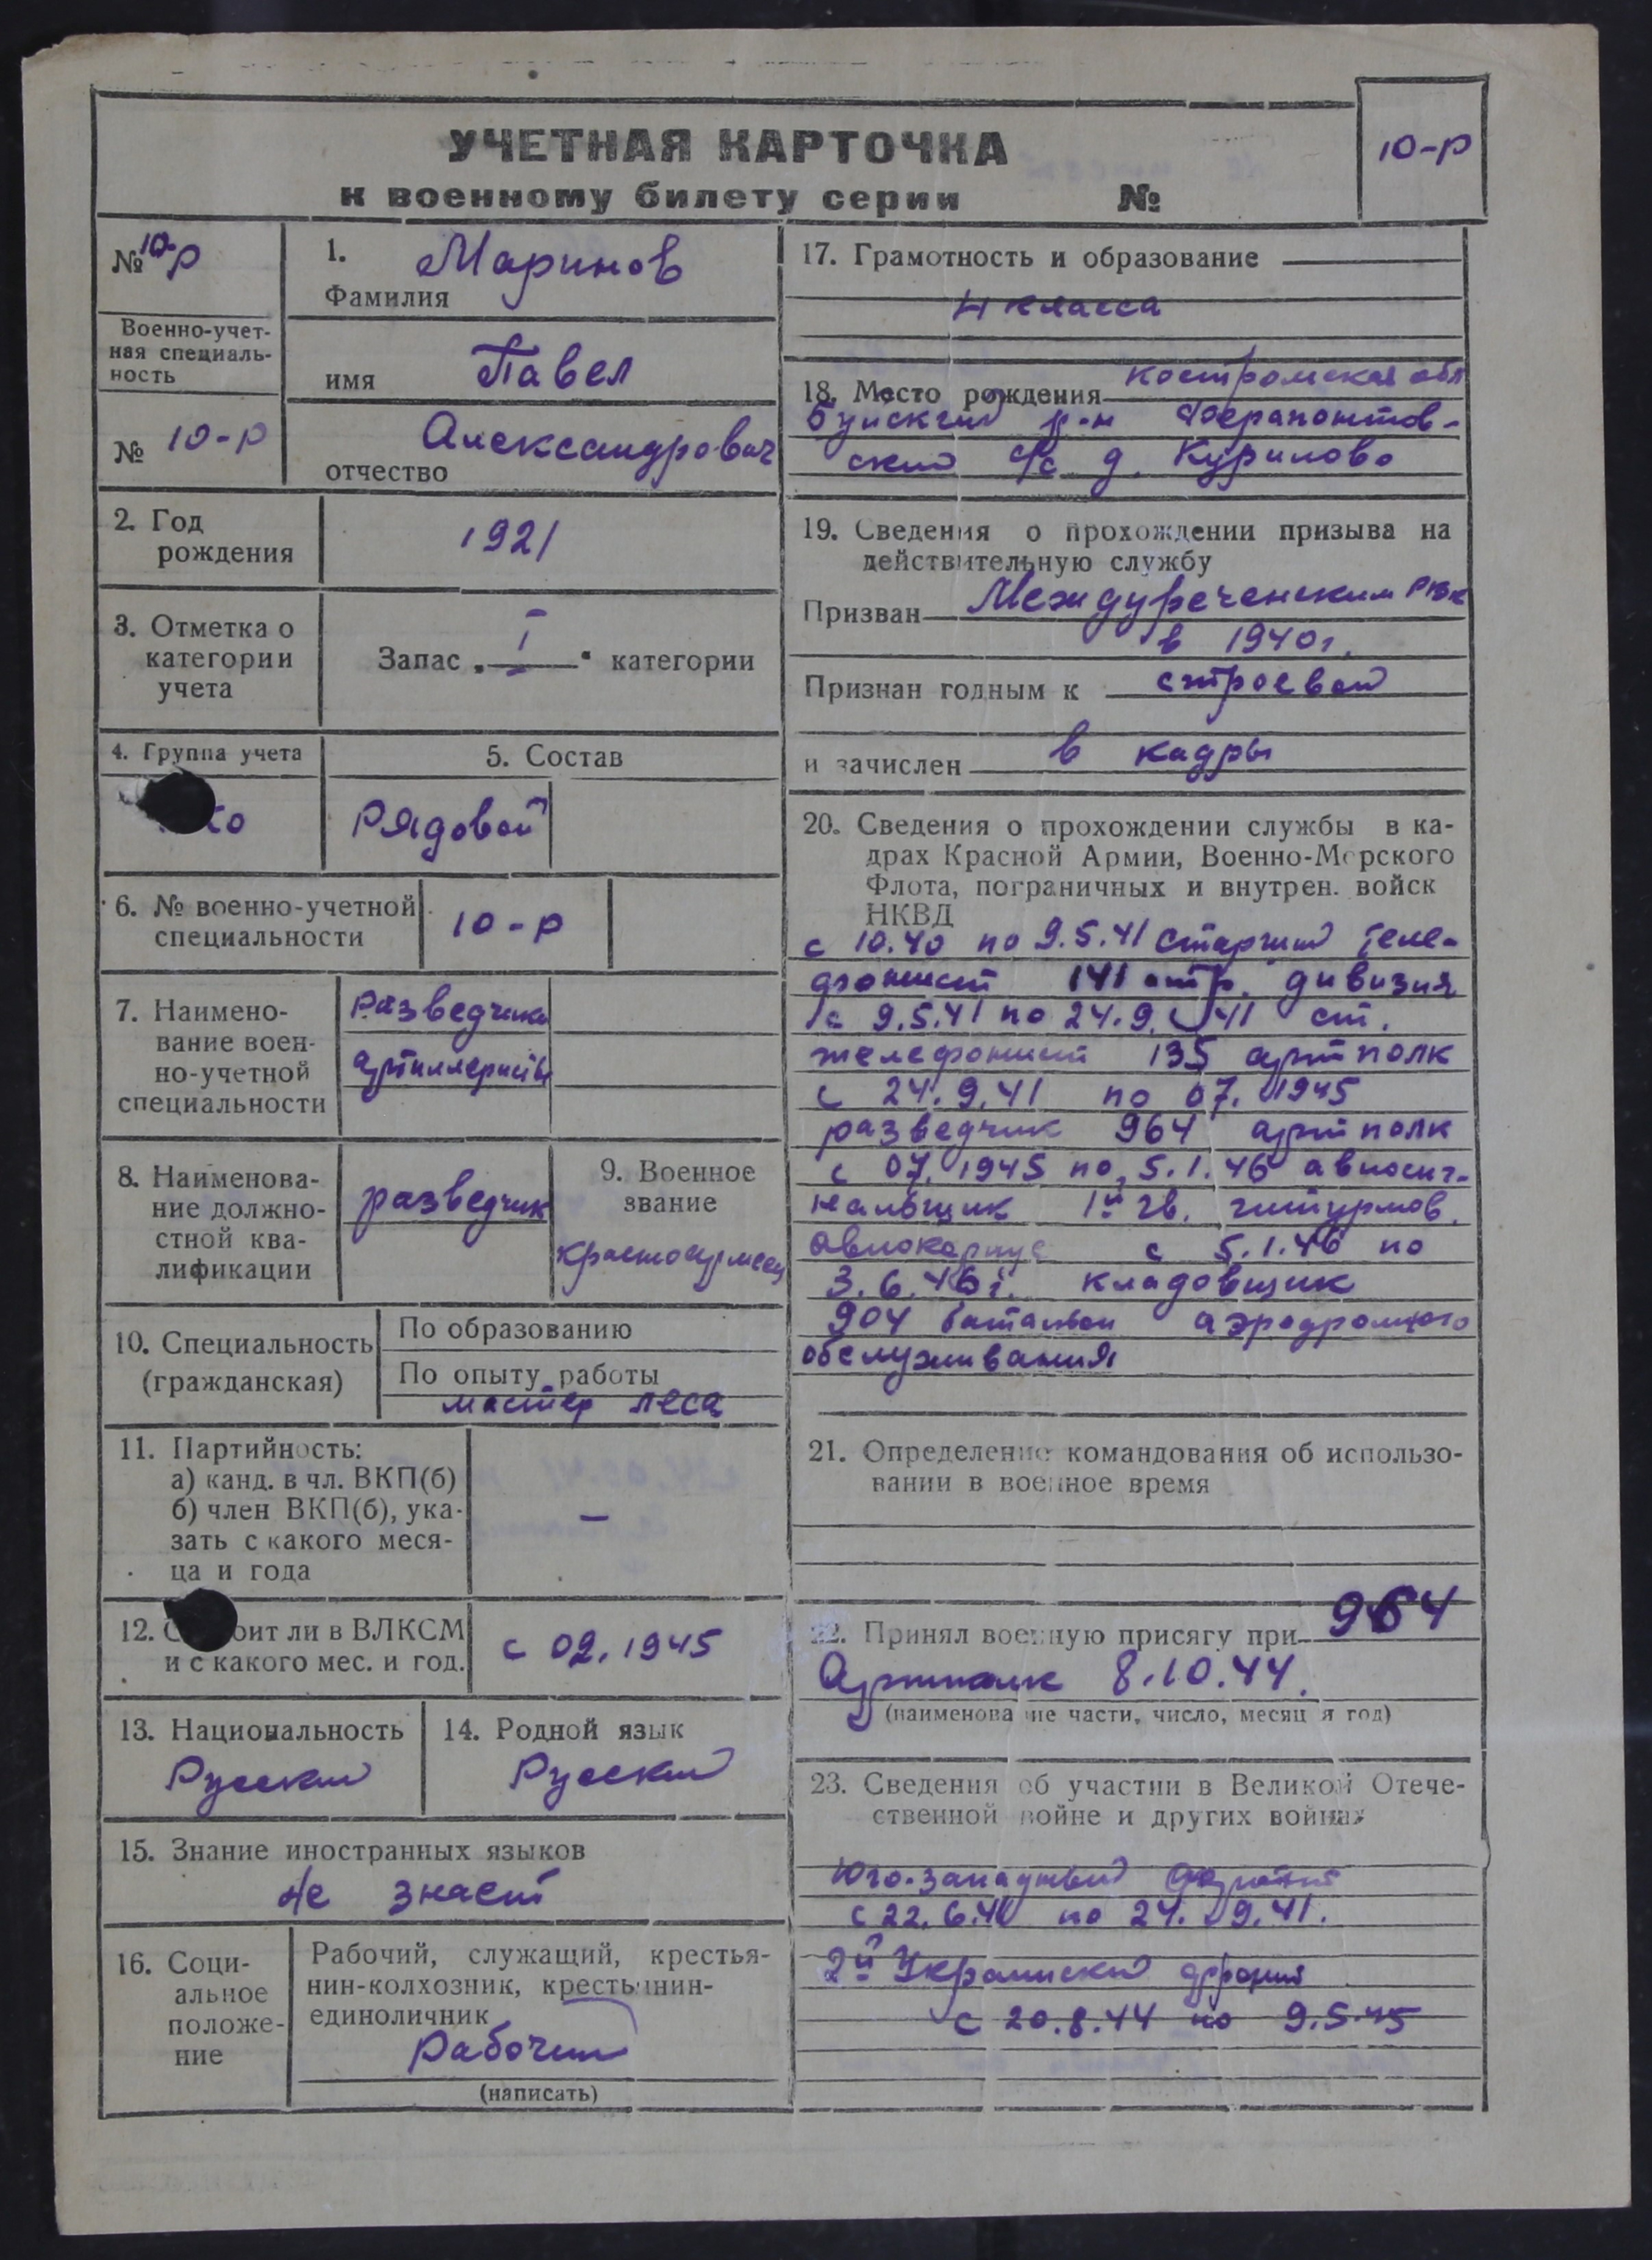 УЧЕТНАЯ КАРТОЧКА
к военному билету серии №
10-р
№ 10-р
Военно-учет-
ная специаль-
ность
№ 10-р
1. Маринов
Фамилия
имя Павел
Александрович
отчество
2. Год
рождения
1921
3. Отметка о
категории
учета
Запас „ I " категории
4. Группа учета
5. Состав
Рядовой
6. № военно-учетной
специальности
10-р
7. Наимено-
вание воен-
но-учетной
специальности
Разведчики
артиллеристы
8. Наименова-
ние должно-
стной ква-
лификации
разведчик
9. Военное
звание
красноармеец
10. Специальность
(гражданская)
По образованию
По опыту работы
мастер леса
11. Партийность:
а) канд. в чл. ВКП(б)
б) член ВКП(б), ука-
зать с какого меся-
ца и года
—
12. оит ли в ВЛКСМ
и с какого мес. и год.
с 02.1945
13. Национальность
Русский
14. Родной язык
Русский
15. Знание иностранных языков
Не знает
16. Соци-
альное
положе-
ние
Рабочий, служащий, крестья-
нин-колхозник, крестьянин-
единоличник
Рабочий
(написать)
17. Грамотность и образование
4 класса
18. Место рождения Костромская обл
Буйский р-н Ферапонтов-
ский с/с д. Курилово
19. Сведения о прохождении призыва на
действительную службу
Призван Междуреченским РВК
в 1940г.
Признан годным к строевой
и зачислен в кадры
20. Сведения о прохождении службы в ка-
драх Красной Армии, Военно-Морского
Флота, пограничных и внутрен. войск
НКВД
с 10.40 по 9.5.41 старший теле-
фонист 141 стр. дивизия
с 9.5.41 по 24.9.41 ст.
телефонист 135 артполк
с 24.9.41 по 07.1945
разведчик 964 артполк
с 07.1945 по 5.1.46 авиосиг-
нальщик 1й гв. штурмов.
авиокорпус с 5.1.46 по
3.6.46г. кладовщик
904 батальон аэродромного
обслуживания
21. Определение командования об использо-
вании в военное время
22. Принял военную присягу при 964
Артполк 8.10.44.
(наименование части, число, месяц и год)
23. Сведения об участии в Великой Отече-
ственной войне и других войнах
Юго-Западный фронт
с 22.6.41 по 24.9.41.
2й Украинский фронт
с 20.8.44 по 9.5.45